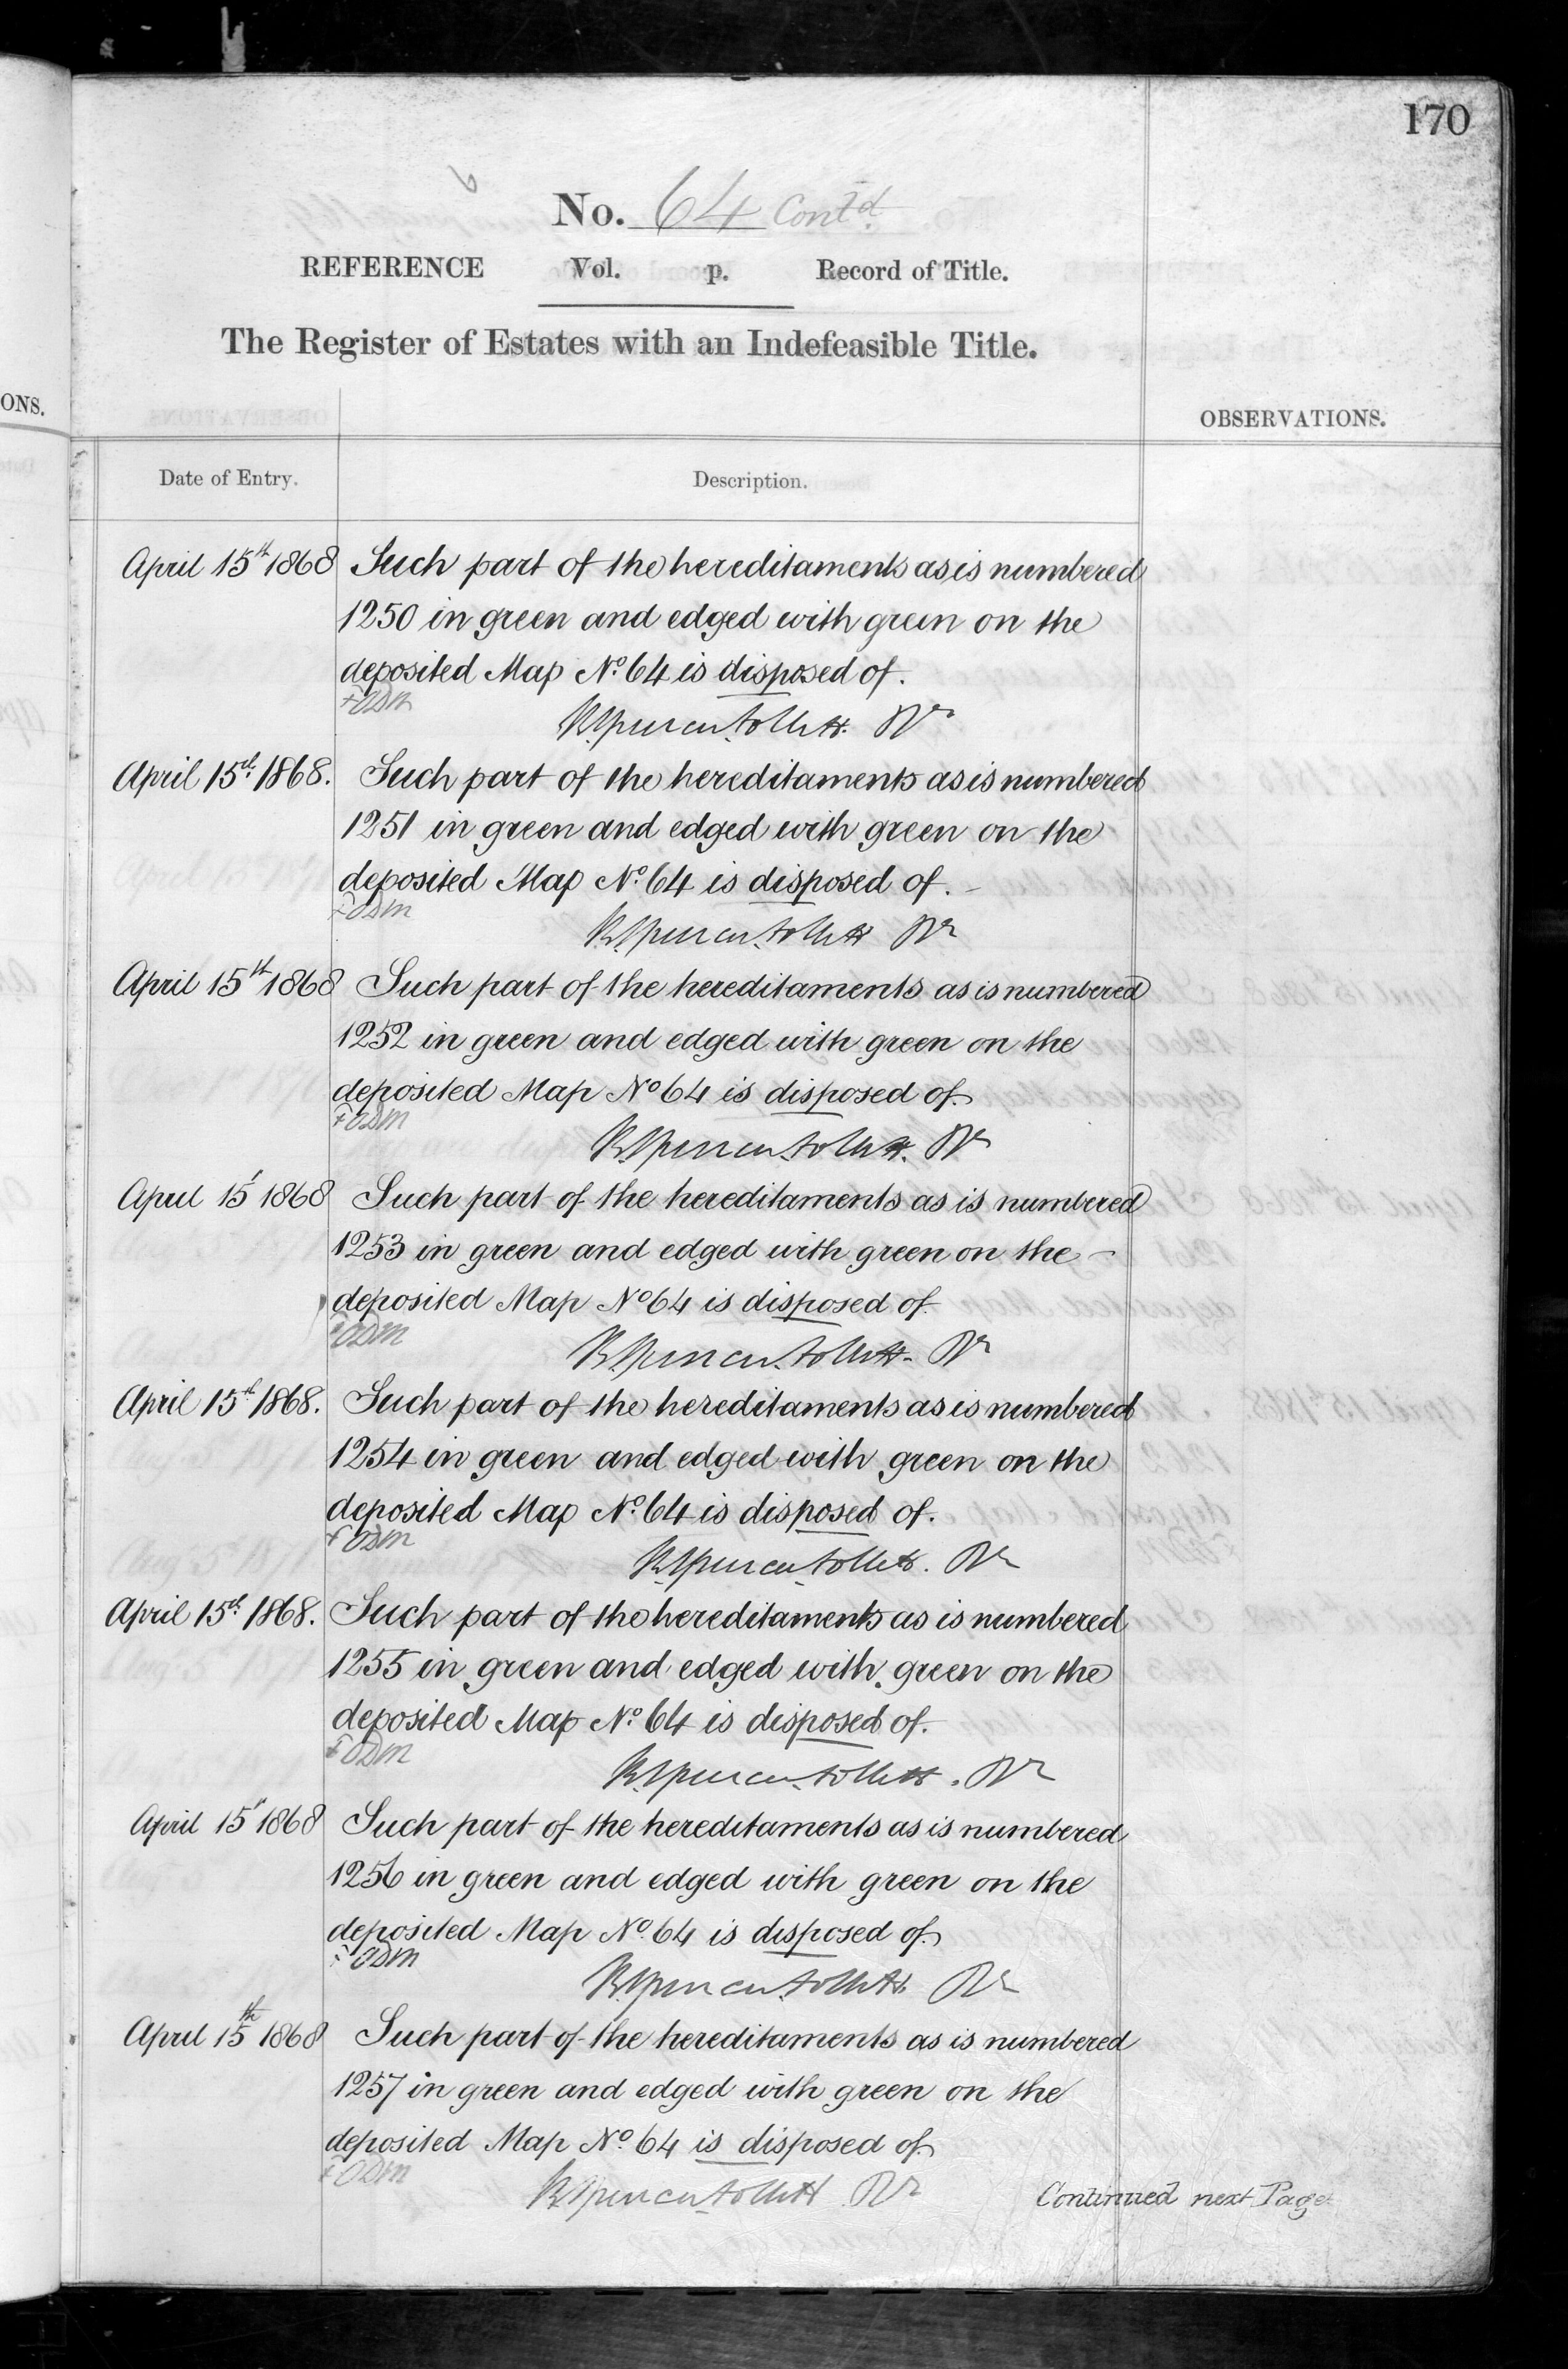 170
No. 64 Cont.d
REFERENCE Vol. p. Record of Title.
The Register of Estates with an Indefeasible Title.
ONS.
OBSERVATIONS.
Date of Entry. Description.
April 15th 1868 Such part of the hereditaments as is numbered
1250 in green and edged with green on the
deposited Map No. 64 is disposed of.
ODM
April 15th 1868. Such part of the hereditaments as is numbered
1251 in green and edged with green on the
deposited Map No. 64 is disposed of. -
ODM
April 15th 1868 Such part of the hereditaments as is numbered
1252 in green and edged with green on the
deposited Map No 64 is disposed of.
ODM
April 15 1868 Such part of the hereditaments as is numbered
1253 in green and edged with green on the -
deposited Map No 64 is disposed of
ODM
April 15th 1868. Such part of the hereditaments as is numbered
1254 in green and edged with green on the
deposited Map No. 64 is disposed of.
ODM
April 15th 1868. Such part of the hereditaments as is numbered
1255 in green and edged with green on the
deposited Map No. 64 is disposed of.
ODM
April 15 1868 Such part of the hereditaments as is numbered
1256 in green and edged with green on the
deposited Map No. 64 is disposed of.
ODM
April 15th 1868 Such part of the hereditaments as is numbered
1257 in green and edged with green on the
deposited Map No. 64 is disposed of
ODM
Continued next Page